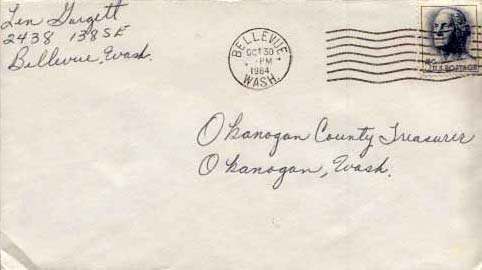 Len Gargett
2438 138 SE
Bellevue, Wash.
BELLEVUE
OCT 30
PM
1964
WASH.
5¢ U.S. POSTAGE
Okanogan County Treasurer
Okanogan, Wash.